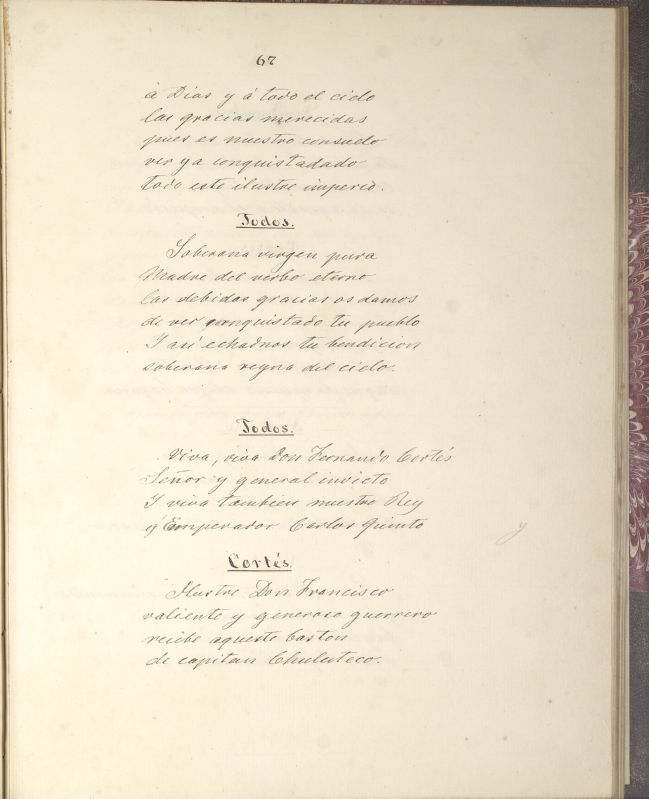 67
á Dios y á todo el cielo
las gracias merecidas
pues es nuestro consuelo
ver ya conquistadado
todo este ilustre imperio.
Todos.
Soberana virgen pura
Madre del verbo eterno
las debidas gracias os damos
de ver conquistado tu pueblo
Y así echadnos tu bendicion
soberana reyna del cielo.
Todos.
Viva, viva Don Fernando Cortés
Señor y general invicto
Y viva tambien nuestro Rey
y Emperador Carlos Quinto
y
Cortés.
Ilustre Don Francisco
valiente y generoso guerrero
recibe aqueste baston
de capitan Chuluteco.